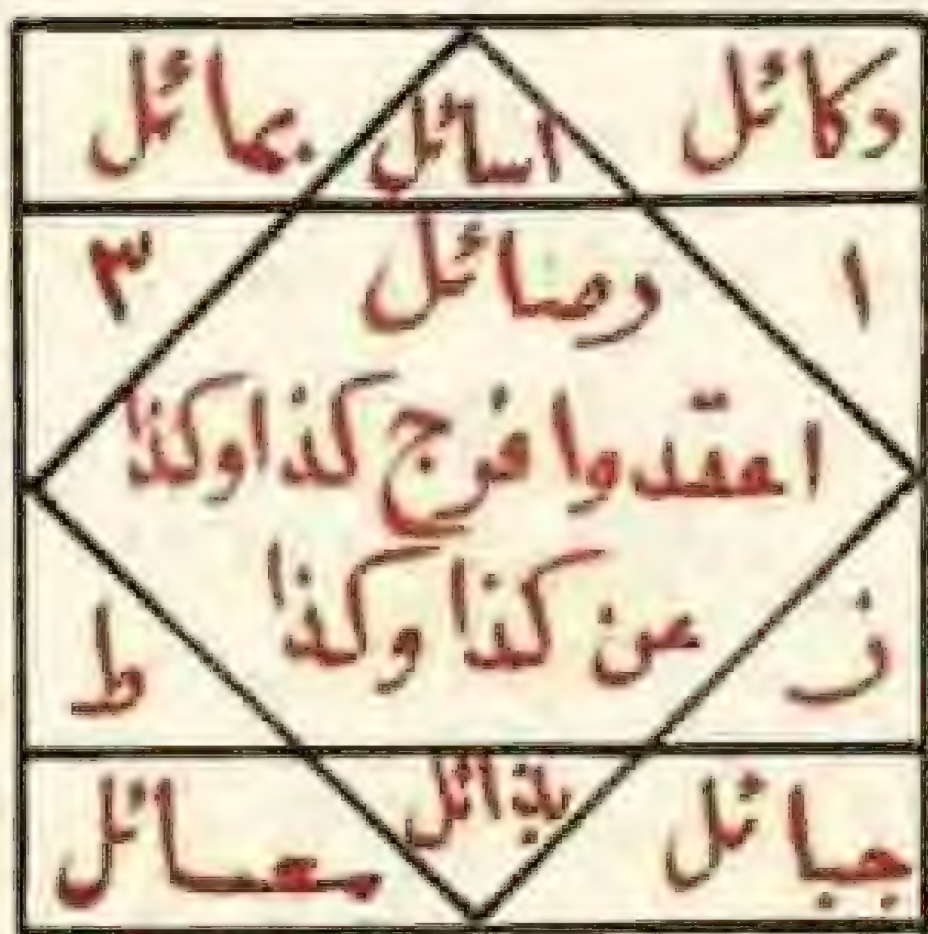 دكائل اسائل بمائل
١ وصائل ٣
اعقدوا فرج كذا وكذا
عن كذا وكذا
ز ط
جبائل يذائل معائل